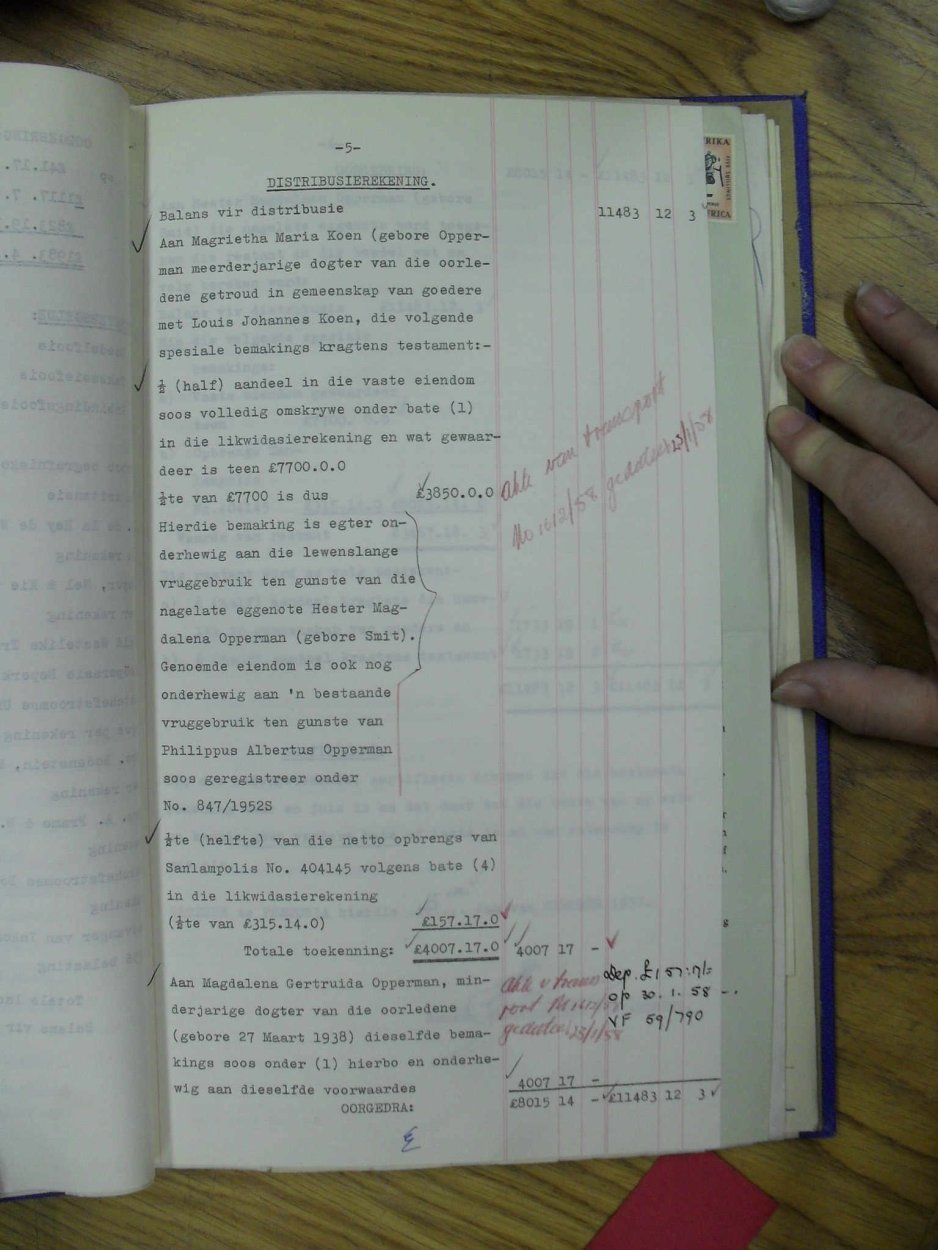 -5-
DISTRIBUSIEREKENING.
Balans vir distribusie 11483 12 3
Aan Magrietha Maria Koen (gebore Opper-
man meerderjarige dogter van die oorle-
dene getroud in gemeenskap van goedere
met Louis Johannes Koen, die volgende
spesiale bemakings kragtens testament:-
½ (half) aandeel in die vaste eiendom
soos volledig omskrywe onder bate (1)
in die likwidasierekening en wat gewaar-
deer is teen £7700.0.0
½te van £7700 is dus £3850.0.0
Akte van transport
gedateer 23/1/58
Hierdie bemaking is egter on-
derhewig aan die lewenslange
vruggebruik ten gunste van die
nagelate eggenote Hester Mag-
dalena Opperman (gebore Smit).
Genoemde eiendom is ook nog
onderhewig aan 'n bestaande
vruggebruik ten gunste van
Philippus Albertus Opperman
soos geregistreer onder
No. 847/1952S
½te (helfte) van die netto opbrengs van
Sanlampolis No. 404145 volgens bate (4)
in die likwidasierekening
(½te van £315.14.0) £157.17.0
Totale toekenning: £4007.17.0 4007 17 -
Aan Magdalena Gertruida Opperman, min-
derjarige dogter van die oorledene
(gebore 27 Maart 1938) dieselfde bema-
kings soos onder (1) hierbo en onderhe-
wig aan dieselfde voorwaardes 4007 17 -
Akte v trans
port
gedateer 23/1/58
Dep. £157:17/-
op 30.1.58
VF 59/790
OORGEDRA: £8015 14 - £11483 12 3
RIKA
FRICA